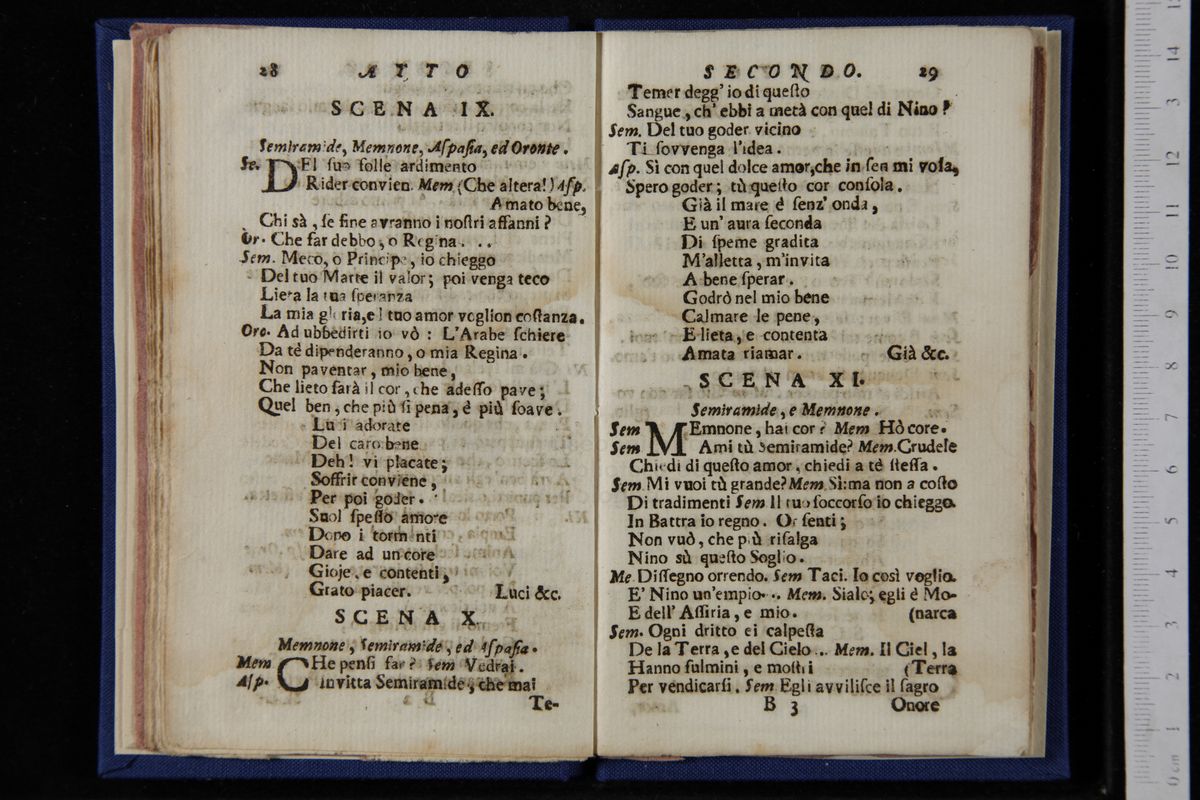 28 ATTO
SCENA IX.
Semiramide, Memnone, Aſpaſia, ed Oronte.
Se. DEl ſuo folle ardimento
Rider convien. Mem. (Che altera!) Aſp.
Amato bene,
Chi sà, ſe fine avranno i noſtri affanni?
Or. Che far debbo, o Regina...
Sem. Meco, o Principe, io chieggo
Del tuo Marte il valor; poi venga teco
Lieta la tua ſperanza
La mia gloria, e l tuo amor voglion coſtanza.
Oro. Ad ubbedirti io vò: L'Arabe ſchiere
Da tè dipenderanno, o mia Regina.
Non paventar, mio bene,
Che lieto farà il cor, che adeſſo pave;
Quel ben, che più ſi pena, è più ſoave.
Luci adorate
Del caro bene
Deh! vi placate;
Soffrir conviene,
Per poi goder.
Suol ſpeſſo amore
Dopo i tormenti
Dare ad un core
Gioje, e contenti,
Grato piacer. Luci &c.
SCENA X
Memnone, Semiramide, ed Aſpaſia.
Mem CHe penſi far? Sem Vedrai.
Aſp. Invitta Semiramide, che mai
Te-
SECONDO. 29
Temer degg' io di queſto
Sangue, ch' ebbi a metà con quel di Nino?
Sem. Del tuo goder vicino
Ti ſovvenga l'idea.
Aſp. Sì con quel dolce amor, che in ſen mi vola,
Spero goder; tù queſto cor conſola.
Già il mare é ſenz' onda,
E un' aura ſeconda
Di ſpeme gradita
M'alletta, m'invita
A bene ſperar.
Godrò nel mio bene
Calmare le pene,
E lieta, e contenta
Amata riamar. Già &c.
SCENA XI.
Semiramide, e Memnone.
Sem MEmnone, hai cor? Mem Hò core.
Sem Ami tù Semiramide? Mem. Crudele
Chiedi di queſto amor, chiedi a tè ſteſſa.
Sem Mi vuoi tù grande? Mem Sì: ma non a coſto
Di tradimenti Sem Il tuo ſoccorſo io chieggo.
In Battra io regno. Or ſenti;
Non vuò, che più riſalga
Nino sù queſto Soglio.
Me Diſſegno orrendo. Sem Taci. Io così voglio.
E' Nino un'empio... Mem. Sialo; egli è Mo-
E dell' Aſſiria, e mio. (narca
Sem. Ogni dritto ei calpeſta
De la Terra, e del Cielo... Mem. Il Ciel, la
Hanno fulmini, e moſtri (Terra
Per vendicarſi. Sem Egli avviliſce il ſagro
B 3 Onore